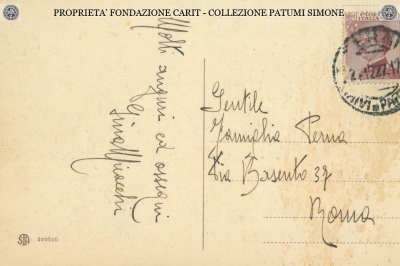 PROPRIETA' FONDAZIONE CARIT - COLLEZIONE PATUMI SIMONE
Molti
auguri ed ossequi
Gina
Gentile
Famiglia Perna
Via Basento 37
Roma
ITALIA
STA